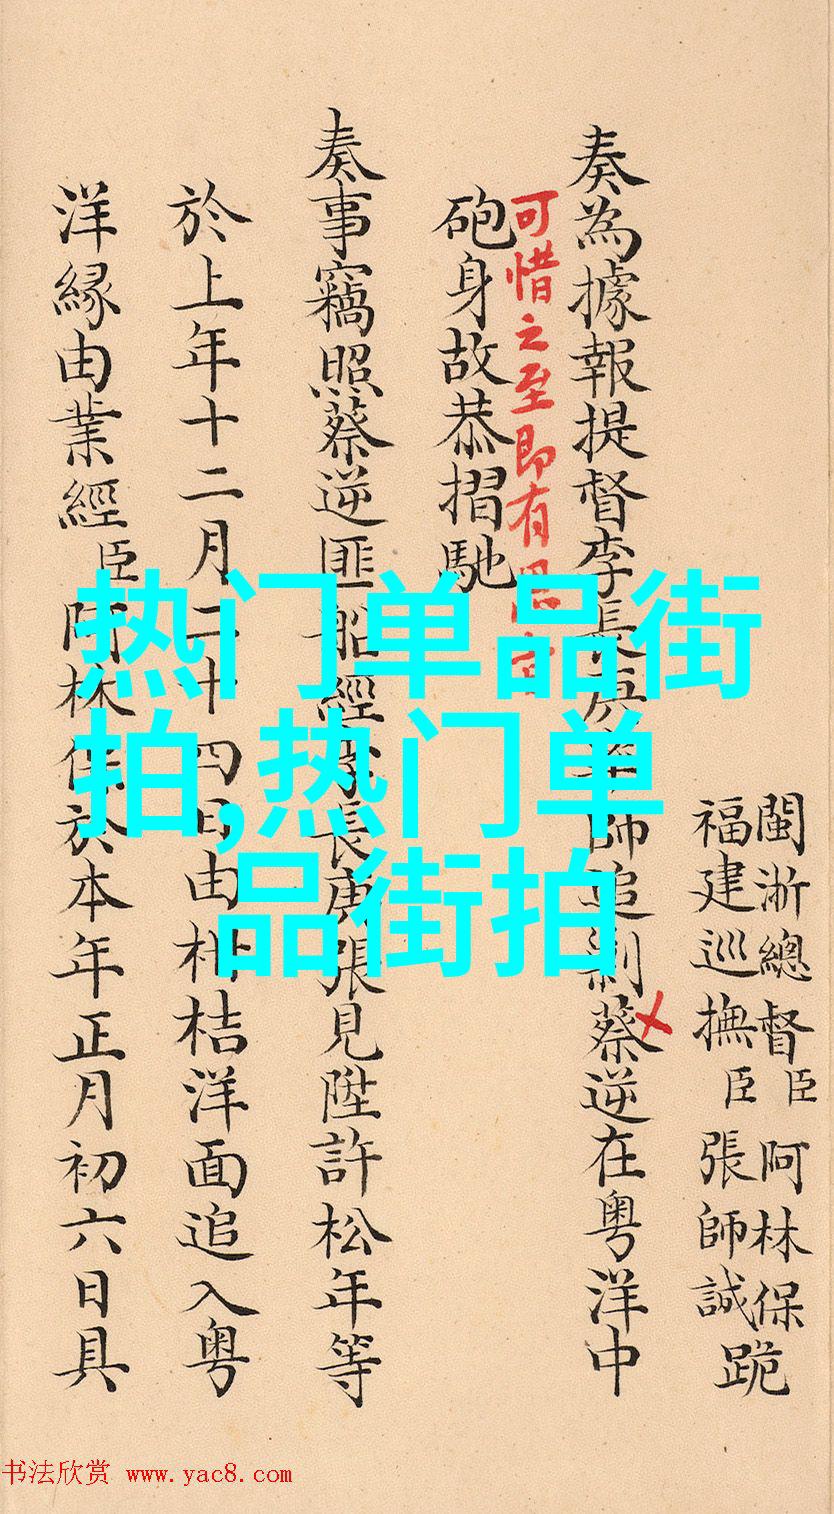 闽浙總督臣阿林保跪
福建巡撫臣張師誠
奏為據報提督李長庚
師追剿蔡逆在粤洋中
可惜之至即有
砲身故恭摺馳
奏事竊照蔡逆匪船經
長庚張見陞許松年等
於上年十二月二十四日由
桔洋面追入粤
洋縁由業經臣阿林保於本年正月初六日具
热门单品街
拍,热门单
品街拍
书法欣赏 www.yac8.com